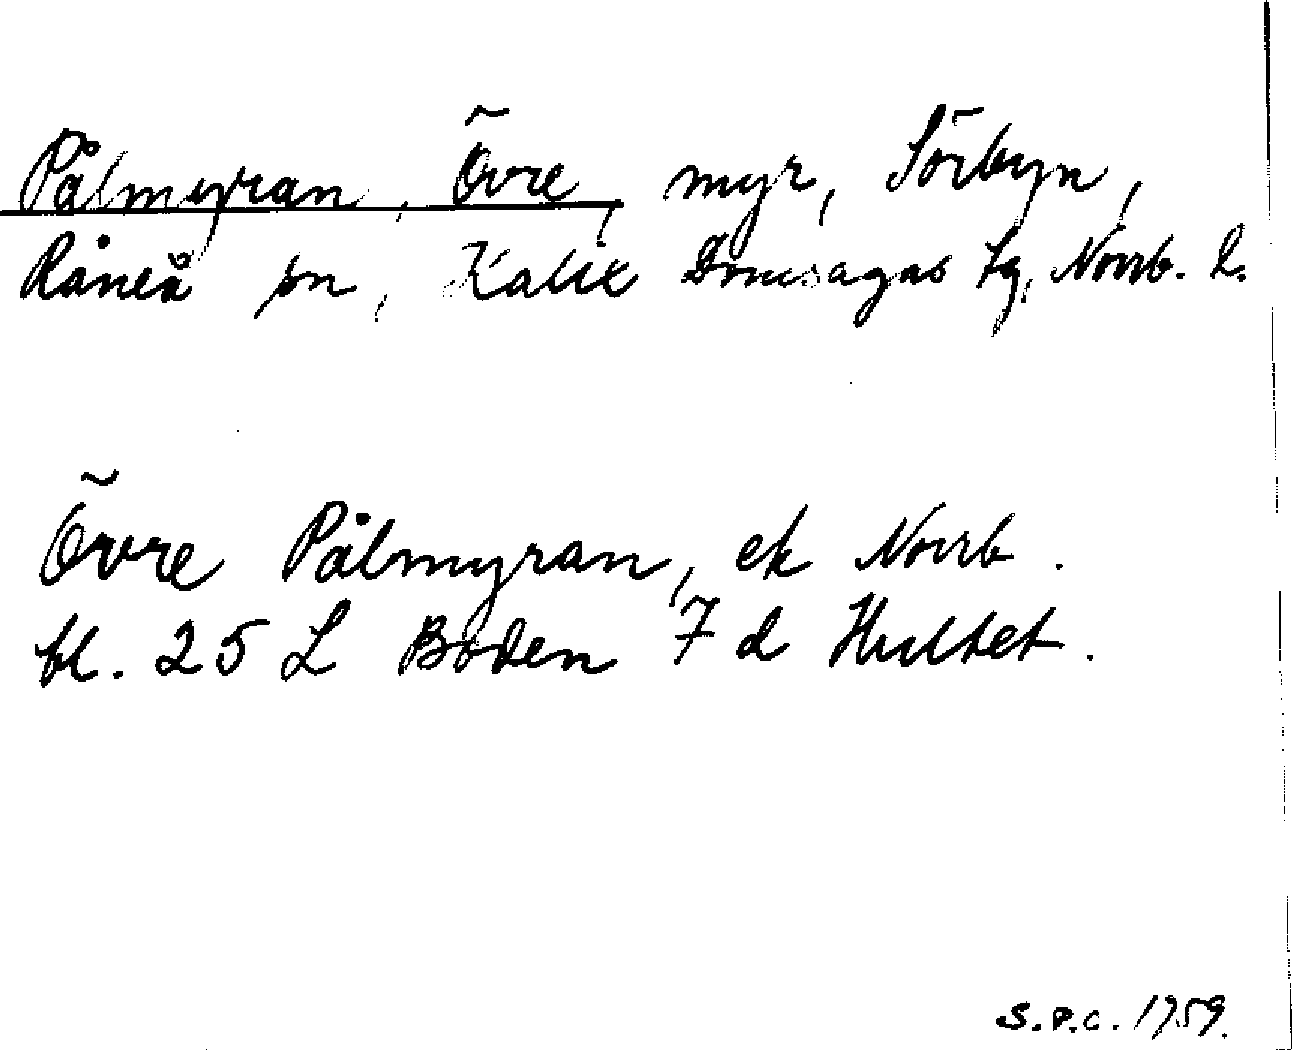 Pålmyran, Övre, myr, Sörbyn,
Råneå sn, Kalix Domsagas tg, Norrb. l.
Övre Pålmyran, ek Norrb.
bl. 25 L Boden 7 d Hultet.
S.P.C. 1959.